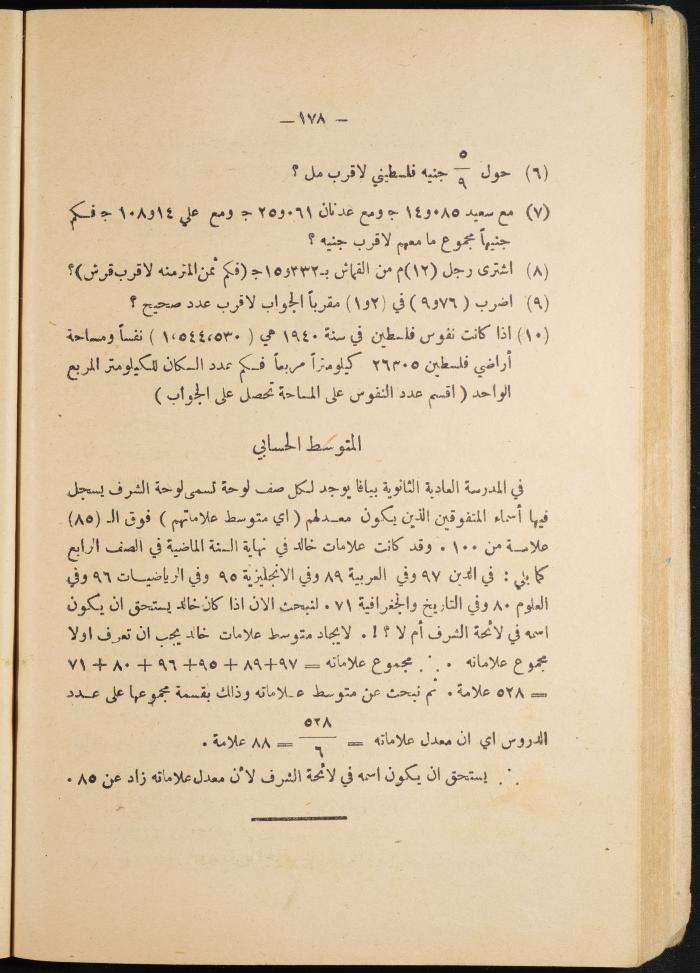 — ١٧٨ —
(٦) حول ٥/٩ جنيه فلسطيني لاقرب مل ؟
(٧) مع سعيد ٠٨٥و١٤ ج ومع عدنان ٠٦١و٢٥ ج ومع علي ١٤و١٠٨ ج فكم
جنيهاً مجموع ما معهم لاقرب جنيه ؟
(٨) اشترى رجل (١٢)م من القماش بـ٣٣٢و١٥ج (فكم ثمن المتر منه لاقرب قرش)؟
(٩) اضرب (٧٦و٩) في (٢و١) مقرباً الجواب لاقرب عدد صحيح ؟
(١٠) اذا كانت نفوس فلسطين في سنة ١٩٤٠ هي (١،٥٤٤،٥٣٠) نفساً ومساحة
أراضي فلسطين ٢٦٣٠٥ كيلومتراً مربعاً فكم عدد السكان للكيلومتر المربع
الواحد ( اقسم عدد النفوس على المساحة تحصل على الجواب )
المتوسط الحسابي
في المدرسة العادية الثانوية بيافا يوجد لكل صف لوحة تسمى لوحة الشرف يسجل
فيها أسماء المتفوقين الذين يكون معدلهم ( اي متوسط علاماتهم ) فوق الـ (٨٥)
علامة من ١٠٠ . وقد كانت علامات خالد في نهاية السنة الماضية في الصف الرابع
كما يلي : في الدين ٩٧ وفي العربية ٨٩ وفي الانجليزية ٩٥ وفي الرياضيات ٩٦ وفي
العلوم ٨٠ وفي التاريخ والجغرافية ٧١ . لنبحث الان اذا كان خالد يستحق ان يكون
اسمه في لائحة الشرف أم لا ؟ ! . لايجاد متوسط علامات خالد يجب ان تعرف اولا
مجموع علاماته . ∴ مجموع علاماته = ٩٧+٨٩+٩٥+٩٦+٨٠+٧١
= ٥٢٨ علامة . ثم نبحث عن متوسط علاماته وذلك بقسمة مجموعها على عدد
الدروس اي ان معدل علاماته = ٥٢٨/٦ = ٨٨ علامة .
∴ يستحق ان يكون اسمه في لائحة الشرف لأن معدل علاماته زاد عن ٨٥ .